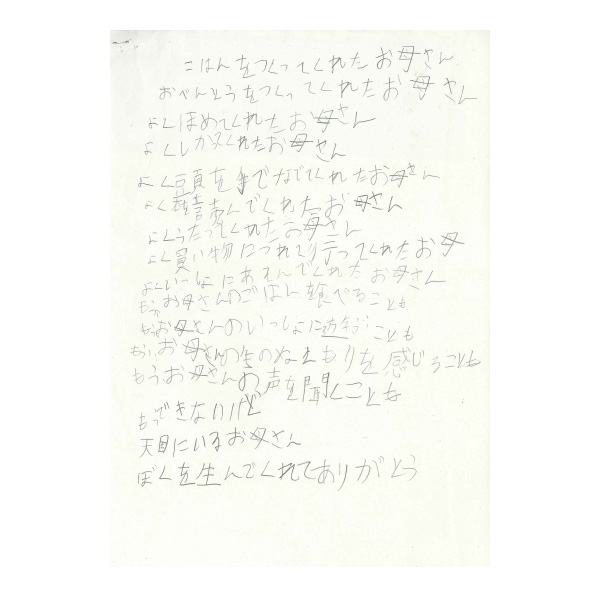 ごはんをつくってくれたお母さん
おべんとうをつくってくれたお母さん
よくほめてくれたお母さん
よくしかってくれたお母さん
よく頭を手でなでてくれたお母さん
よく読んでくれたお母さん
よくうたってくれたお母さん
よく買い物につれて行ってくれたお母
よくいっしょにあそんでくれたお母さん
もうお母さんのごはん食べることも
もうお母さんのいっしょにことも
もうお母さんの手のぬくもりを感じることも
もうお母さんの声を聞くことも
もうできないけど
天国にいるお母さん
ぼくを生んでくれてありがとう